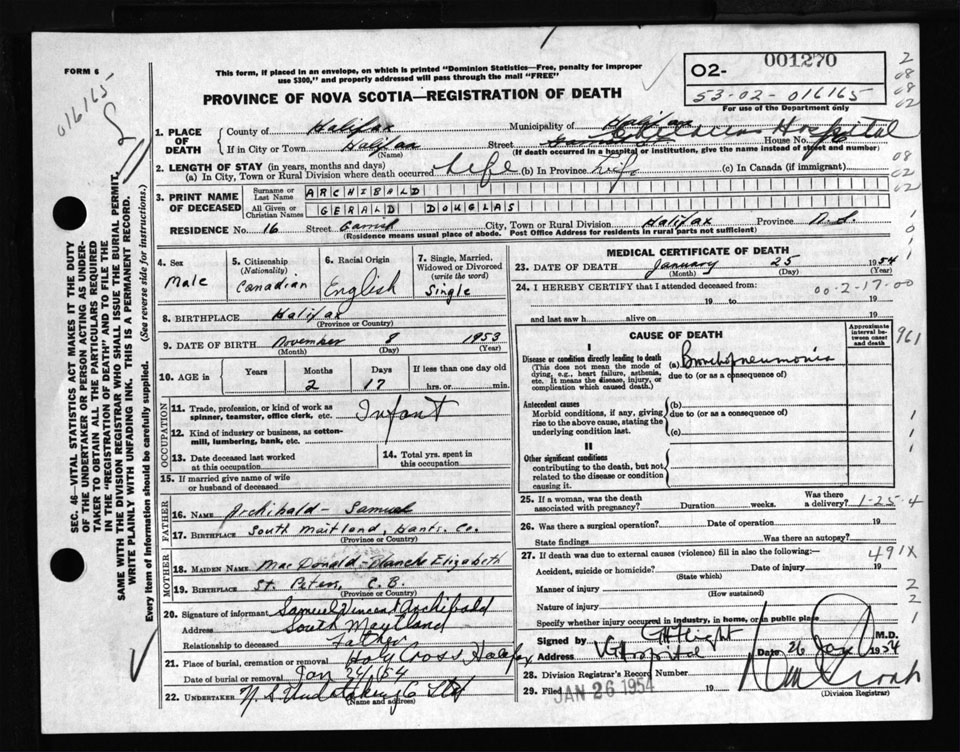 FORM 6
016165
This form, if placed in an envelope, on which is printed "Dominion Statistics—Free, penalty for improper
use $300," and properly addressed will pass through the mail "FREE"
PROVINCE OF NOVA SCOTIA—REGISTRATION OF DEATH
02- 001270
53-02-016165
For use of the Department only
1. PLACE OF DEATH County of Halifax Municipality of Halifax
If in City or Town Halifax (Name) Street House No. Hospital
(If death occurred in a hospital or institution, give the name instead of street and number)
2. LENGTH OF STAY (in years, months and days)
(a) In City, Town or Rural Division where death occurred Life (b) In Province Life (c) In Canada (if immigrant)
3. PRINT NAME OF DECEASED Surname or Last Name ARCHIBALD
All Given or Christian Names GERALD DOUGLAS
RESIDENCE No. 16 Street City, Town or Rural Division Halifax Province N.S.
(Residence means usual place of abode. Post Office Address for residents in rural parts not sufficient)
4. Sex Male
5. Citizenship (Nationality) Canadian
6. Racial Origin English
7. Single, Married, Widowed or Divorced (write the word) Single
8. BIRTHPLACE Halifax
(Province or Country)
9. DATE OF BIRTH November 8 1953
(Month) (Day) (Year)
10. AGE in Years Months 2 Days 17 If less than one day old hrs. or min.
OCCUPATION
11. Trade, profession, or kind of work as spinner, teamster, office clerk, etc. Infant
12. Kind of industry or business, as cotton-mill, lumbering, bank, etc.
13. Date deceased last worked at this occupation
14. Total yrs. spent in this occupation
15. If married give name of wife or husband of deceased
FATHER
16. NAME Archibald - Samuel
17. BIRTHPLACE South Maitland, Hants. Co.
(Province or Country)
MOTHER
18. MAIDEN NAME MacDonald - Blanche Elizabeth
19. BIRTHPLACE St. Peters, C.B.
(Province or Country)
20. Signature of informant Samuel Vincent Archibald
Address South Maytland
Relationship to deceased Father
21. Place of burial, cremation or removal Holy Cross Halifax
Date of burial or removal Jan /54
22. UNDERTAKER N.S. Undertaking Co Ltd
(Name and address)
MEDICAL CERTIFICATE OF DEATH
23. DATE OF DEATH January 25 1954
(Month) (Day) (Year)
24. I HEREBY CERTIFY that I attended deceased from:
00-2-17-00
19 to 19
and last saw h alive on 19
CAUSE OF DEATH
Approximate interval between onset and death
I
Disease or condition directly leading to death
(This does not mean the mode of dying, e.g., heart failure, asthenia, etc. It means the disease, injury, or complication which caused death.)
(a) Bronchopneumonia
due to (or as a consequence of)
Antecedent causes
Morbid conditions, if any, giving rise to the above cause, stating the underlying condition last.
(b)
due to (or as a consequence of)
(c)
II
Other significant conditions
contributing to the death, but not related to the disease or condition causing it.
25. If a woman, was the death associated with pregnancy? Duration weeks. Was there a delivery? 1-25-4
26. Was there a surgical operation? Date of operation 19
State findings Was there an autopsy?
27. If death was due to external causes (violence) fill in also the following:—
491X
Accident, suicide or homicide? Date of injury 19
(State which)
Manner of injury
(How sustained)
Nature of injury
Specify whether injury occurred in industry, in home, or in public place
Signed by M.D.
Address V G Hospital Date 26 Jan 1954
28. Division Registrar's Record Number
29. Filed JAN 26 1954 19
(Division Registrar)
SEC. 46—VITAL STATISTICS ACT MAKES IT THE DUTY
OF THE UNDERTAKER OR PERSON ACTING AS UNDER-
TAKER TO OBTAIN ALL THE PARTICULARS REQUIRED
IN THE "REGISTRATION OF DEATH" AND TO FILE THE
SAME WITH THE DIVISION REGISTRAR WHO SHALL ISSUE THE BURIAL PERMIT.
WRITE PLAINLY WITH UNFADING INK. THIS IS A PERMANENT RECORD.
Every item of Information should be carefully supplied. (See reverse side for instructions.)
2
08
02
08
02
961